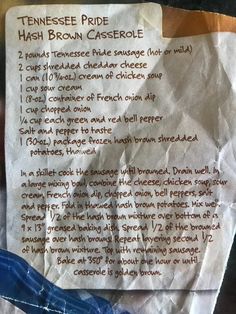 TENNESSEE PRIDE
HASH BROWN CASSEROLE
2 pounds Tennessee Pride sausage (hot or mild)
2 cups shredded cheddar cheese
1 can (10 3/4-oz.) cream of chicken soup
1 cup sour cream
1 (8-oz.) container of French onion dip
1 cup chopped onion
1/4 cup each green and red bell pepper
Salt and pepper to taste
1 (30-oz.) package frozen hash brown shredded
potatoes, thawed
In a skillet cook the sausage until browned. Drain well. In
a large mixing bowl combine the cheese, chicken soup, sour
cream, French onion dip, chopped onion, bell peppers, salt
and pepper. Fold in thawed hash brown potatoes. Mix well.
Spread 1/2 of the hash brown mixture over bottom of a
9 x 13" greased baking dish. Spread 1/2 of the browned
sausage over hash browns. Repeat layering second 1/2
of hash brown mixture. Top with remaining sausage.
Bake at 350° for about one hour or until
casserole is golden brown.